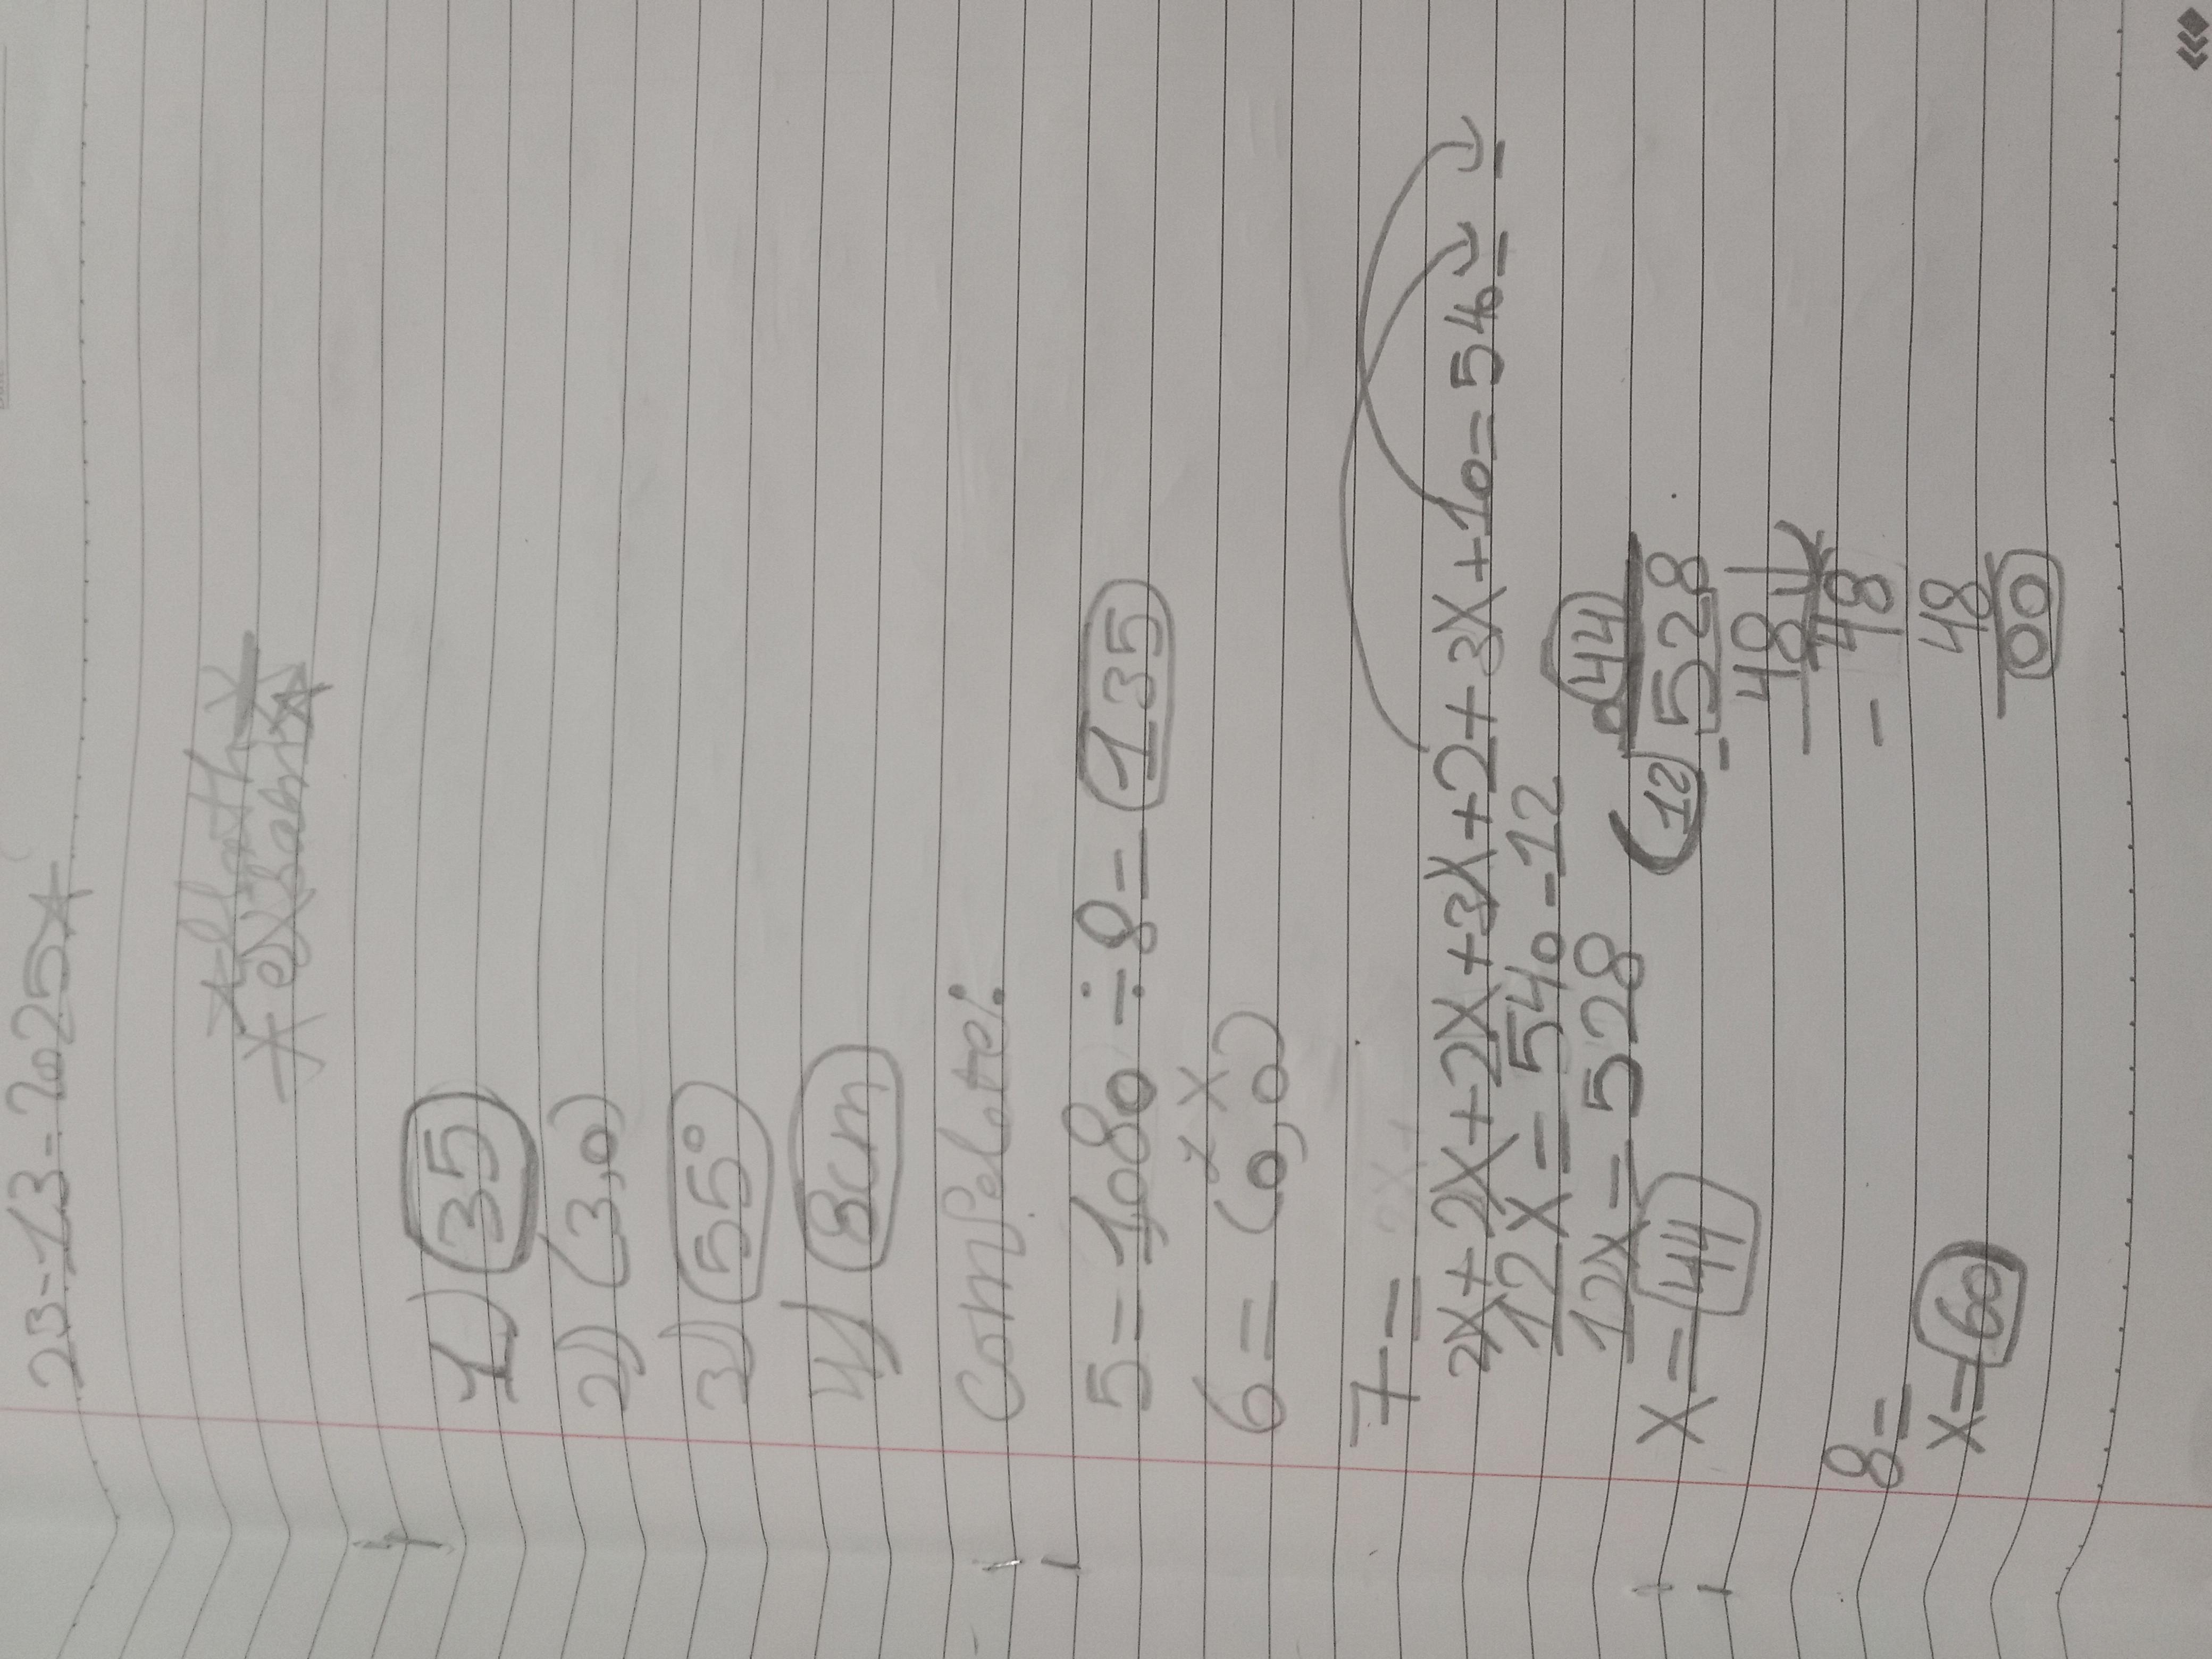 23-13-2025*
*Math*
*exsam*
1) 35
2) (3,0)
3) 55°
4) 8cm
ComPelete:
5= 1080 ÷ 8 = 135
6= (0,0)
7=
2X+2X+2X+3X+2+3X+10=540 - -
12X=540-12
12X=528
X=44
44
12 528
- 48
48
- 48
00
8=
X=60